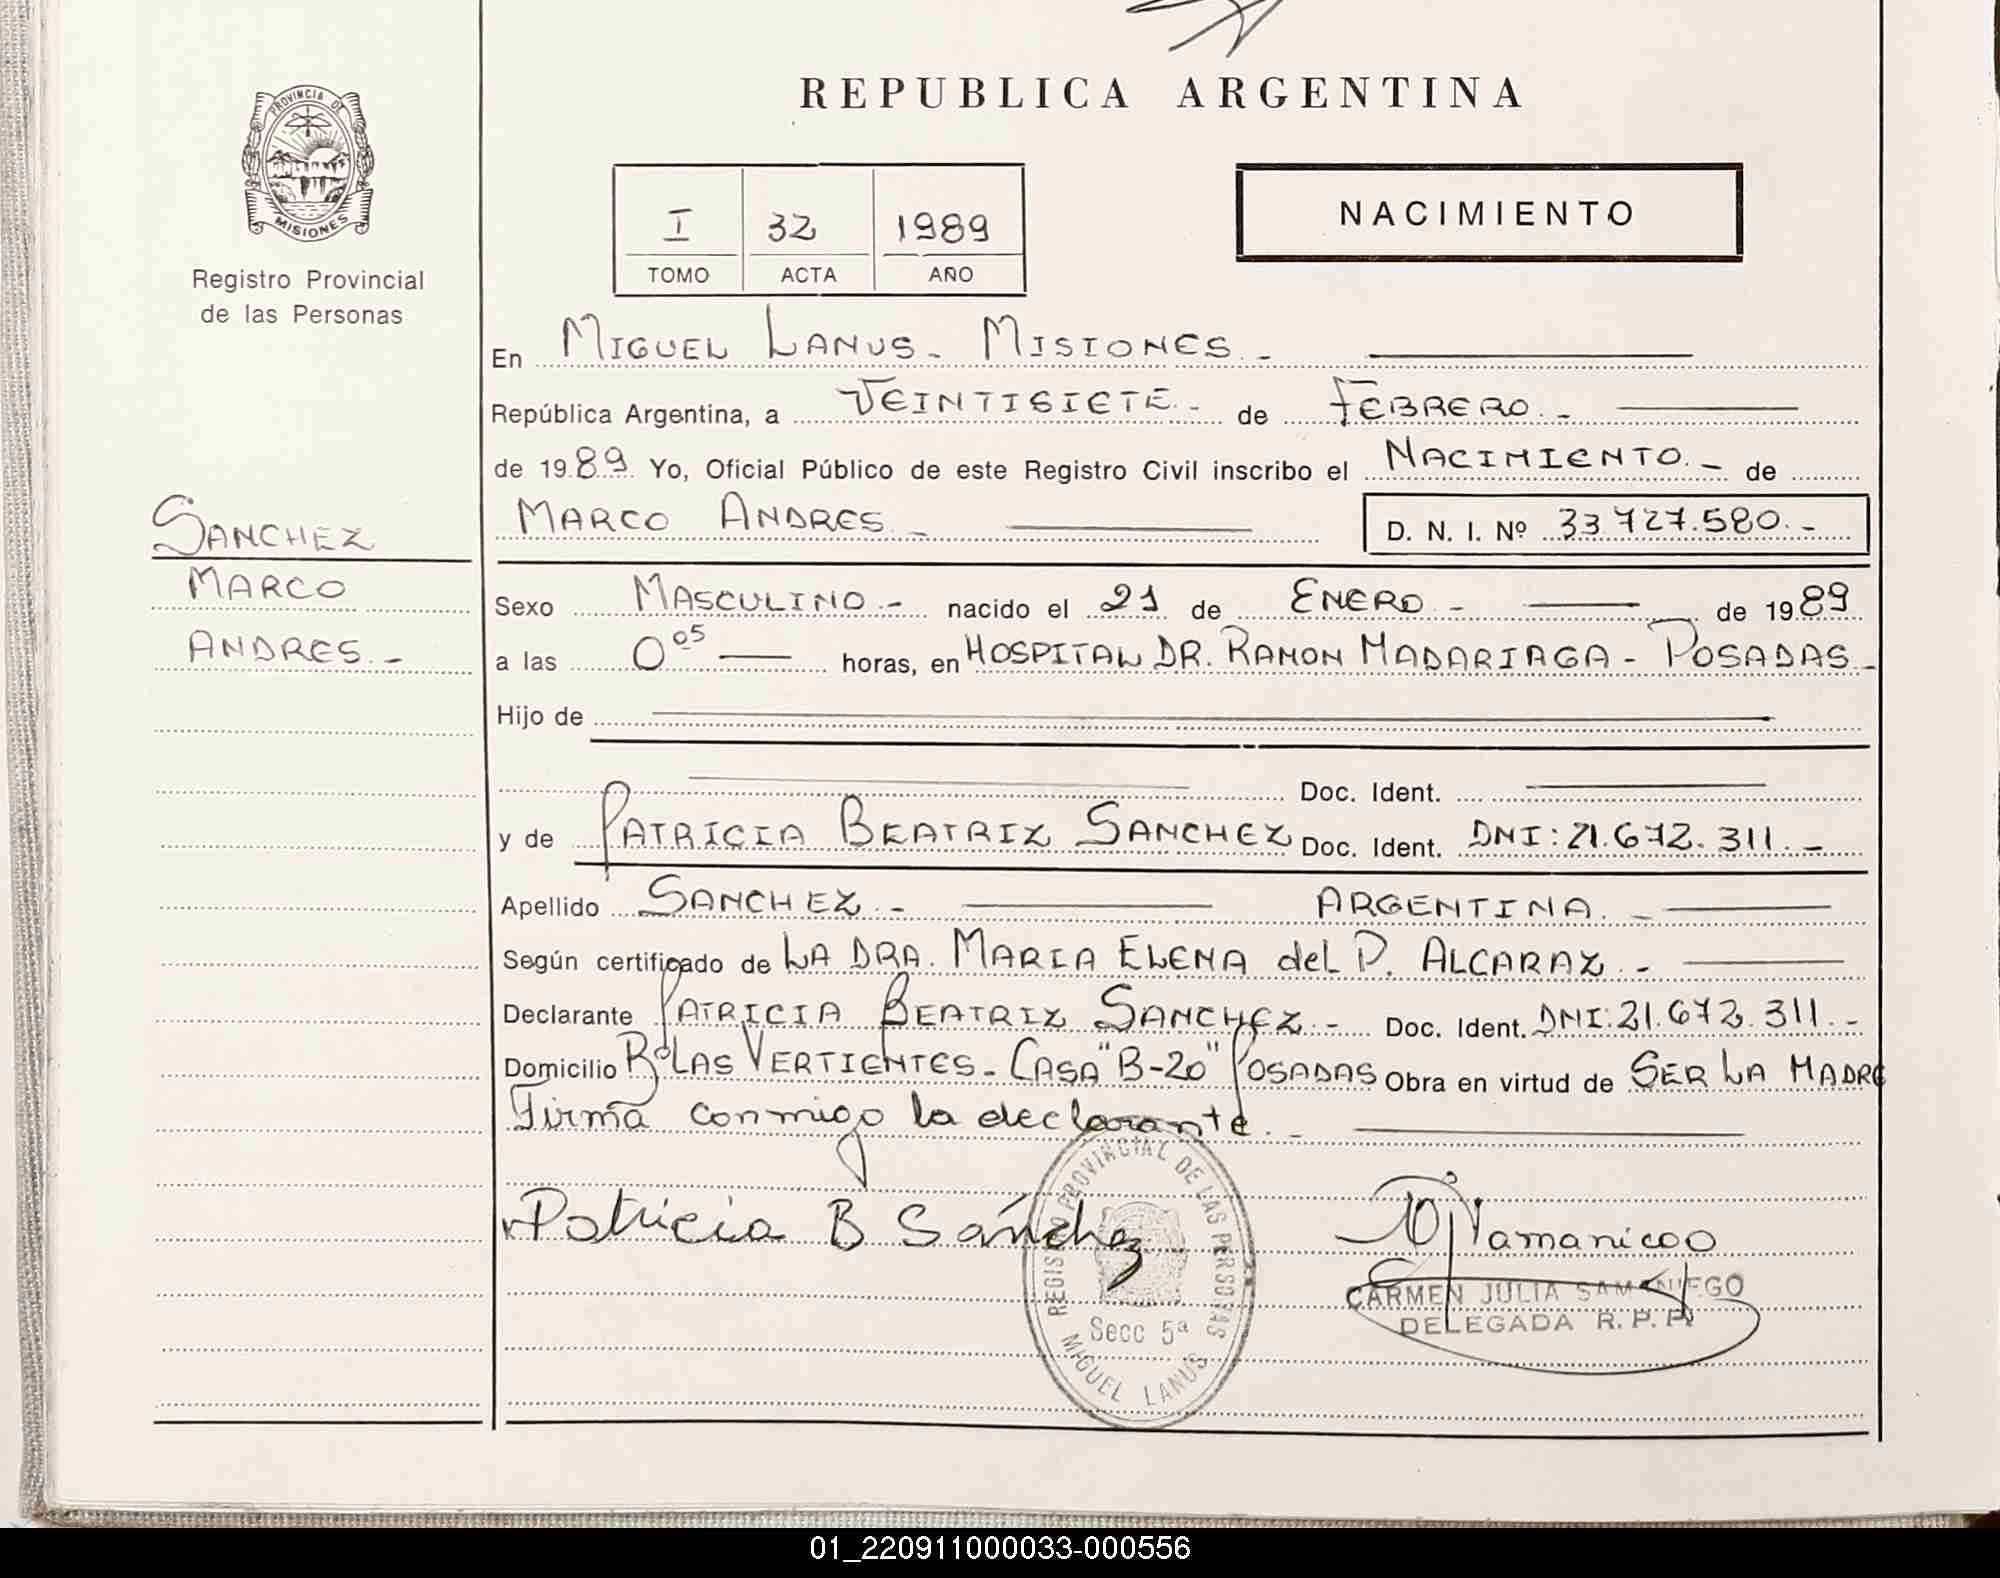 REPUBLICA ARGENTINA
PROVINCIA DE
MISIONES
Registro Provincial
de las Personas
I 32 1989
TOMO ACTA AÑO
NACIMIENTO
En MIGUEL LANUS - MISIONES.-
República Argentina, a VEINTISIETE.- de FEBRERO.-
de 1989. Yo, Oficial Público de este Registro Civil inscribo el NACIMIENTO.- de
MARCO ANDRES.- D. N. I. Nº 33.727.580.-
SANCHEZ
MARCO
ANDRES.-
Sexo MASCULINO.- nacido el 21 de ENERO.- de 1989
a las 0 05 horas, en HOSPITAL DR. RAMON MADARIAGA - POSADAS.-
Hijo de
Doc. Ident.
y de PATRICIA BEATRIZ SANCHEZ Doc. Ident. DNI: 21.672.311.-
Apellido SANCHEZ.- ARGENTINA.-
Según certificado de LA DRA. MARIA ELENA del P. ALCARAZ.-
Declarante PATRICIA BEATRIZ SANCHEZ.- Doc. Ident. DNI: 21.672.311.-
Domicilio Bº LAS VERTIENTES - CASA "B-20" POSADAS Obra en virtud de SER LA MADRE
Firma conmigo la declarante.-
Patricia B Sánchez
REGISTRO PROVINCIAL DE LAS PERSONAS
Secc 5ª
MIGUEL LANUS
CARMEN JULIA SAMANIEGO
DELEGADA R. P. P.
01_220911000033-000556